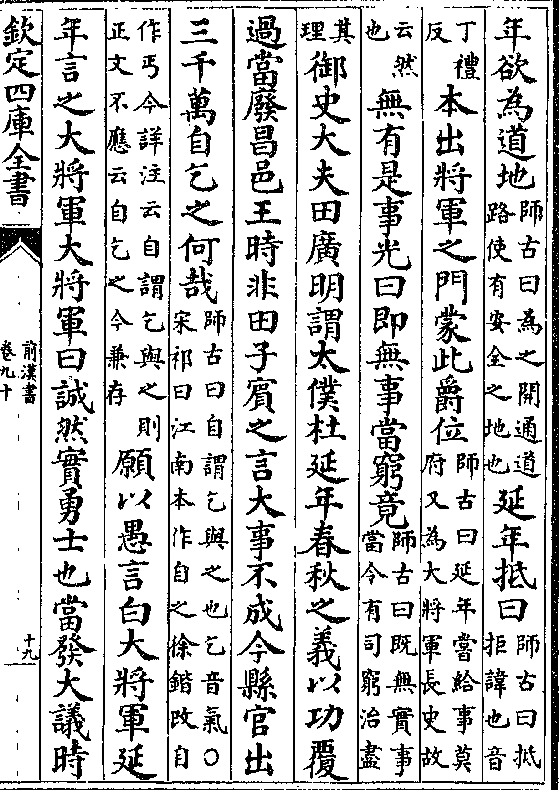 年欲為道地師古曰為之開通道路使有安全之地也延年抵曰師古曰抵拒諱也音
丁禮反本出將軍之門蒙此爵位師古曰延年嘗給事莫府又為大將軍長史故
云然也無有是事光曰即無事當窮竟師古曰既無實事當令有司窮治盡
其理御史大夫田廣明謂太僕杜延年春秋之義以功覆
過當廢昌邑王時非田子賓之言大事不成今縣官出
三千萬自乞之何哉師古曰自謂乞與之也乞音氣○宋祁曰江南本作自之徐鍇改自
作丐今詳注云自謂乞與之則正文不應云自乞之今兼存願以愚言白大將軍延
年言之大將軍大將軍曰誠然實勇士也當發大議時
欽定四庫全書
前漢書
卷九十
十九